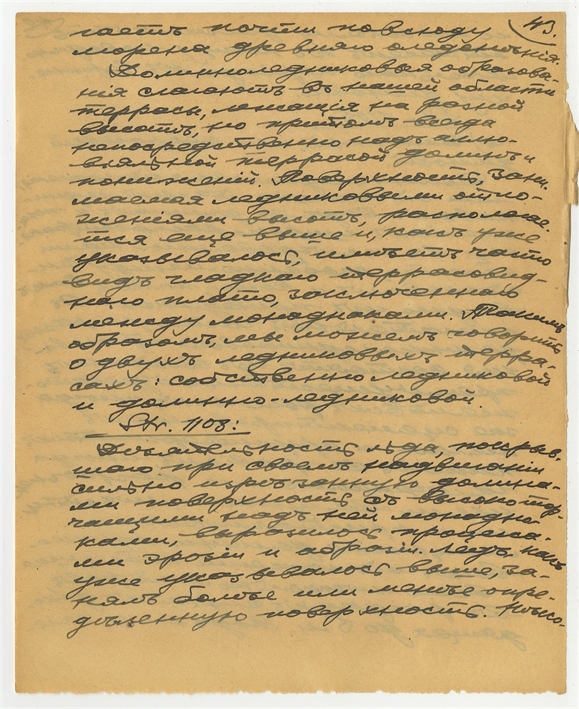 43.
гаетъ почти повсюду
морена древняго оледенѣнія.
Долинноледниковыя образова-
нія слагаютъ въ нашей области
террасы, лежащія на разной
высотѣ, но притомъ всегда
непосредственно надъ аллю-
віальной террасой долинъ и
пониженій. Поверхность, зани-
маемая ледниковыми отло-
женіями высотъ, располагае-
тся еще выше и, какъ уже
указывалось, имѣетъ часто
видъ гладкаго террасовид-
наго плато, заключеннаго
между монаднаками. Такимъ
образомъ, мы можемъ говорить
о двухъ ледниковыхъ терра-
сахъ: собственно ледниковой
и долинно-ледниковой.
Str. 1108:
Дѣятельность льда, покрыв-
шаго при своемъ надвиганіи
сильно изрѣзанную долина-
ми поверхность съ высоко тор-
чащими надъ ней монадна-
ками, выразилось процесса-
ми эрозіи и абразіи. Ледъ, какъ
уже указывалось выше, за-
нялъ болѣе или менѣе опре-
дѣленную поверхность.